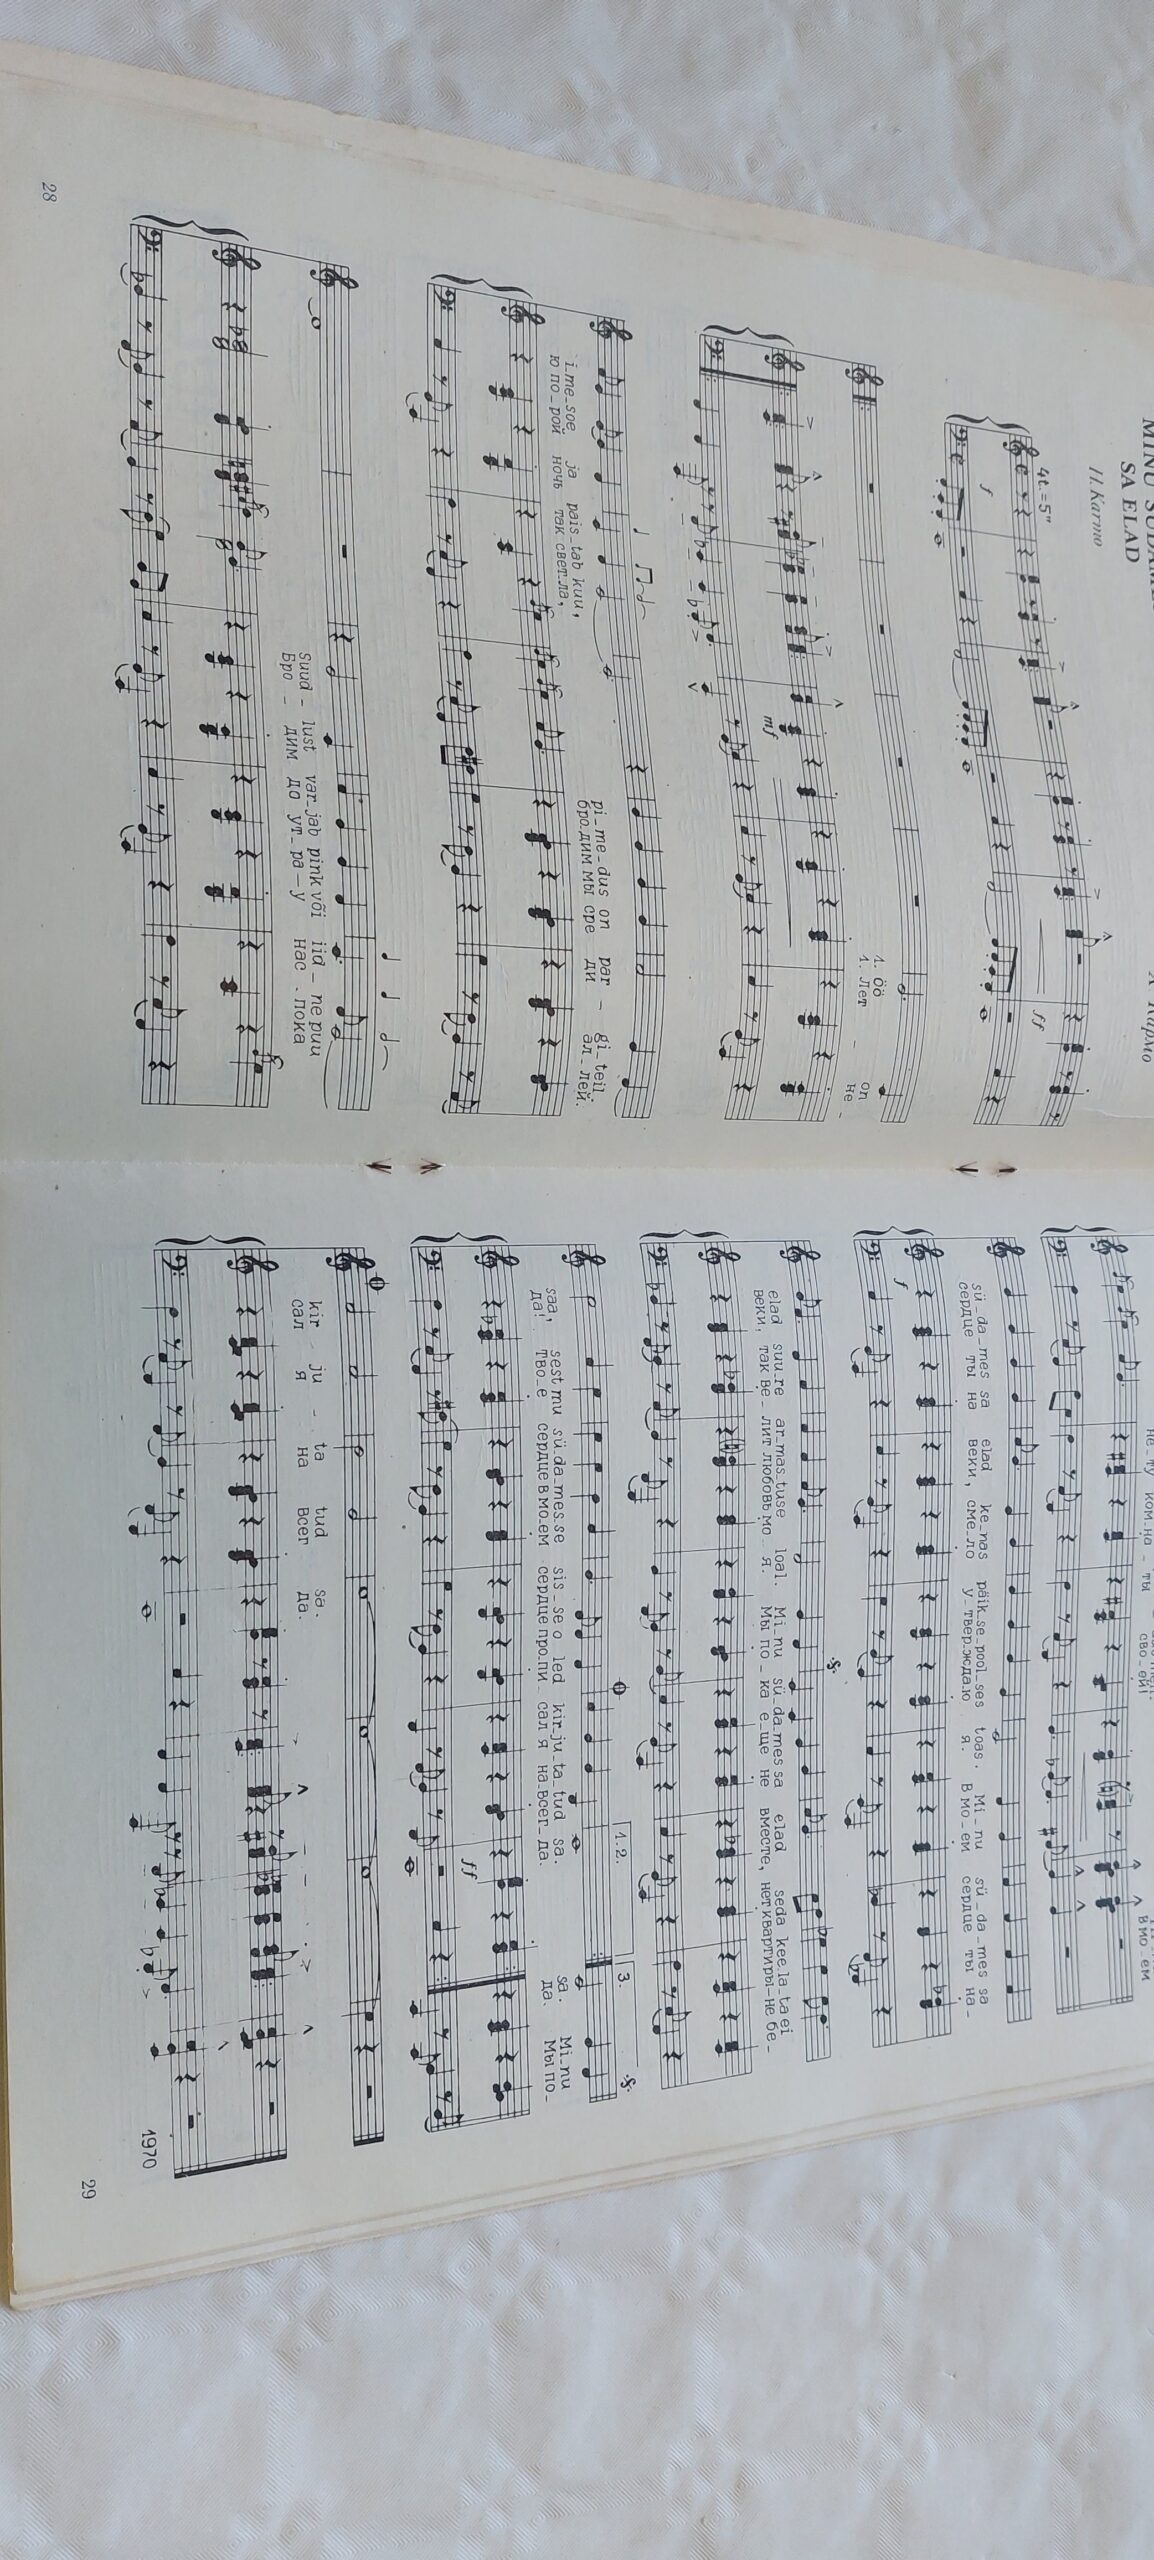 SA ELAD
H. Karmo
Х. Кармо
4t.=5"
f
ff
1. Öö on
1. Лет - не -
mf
i_me_soe ja pais_tab kuu, pi_me_dus on par - gi_teil.
ю по_рой ночь так свет_ла, бро_дим мы сре ди ал - лей.
Suud - lust var_jab pink või iid - ne puu
Бро - дим до ут_ра - у нас - пока
28
не_ту ком_на_ты сво_ей! В мо_ем
sü_da_mes sa elad ke_nas päik_se_pool_ses toas. Mi_nu sü_da_mes sa
сердце ты на веки, сме_ло у_твер.ждаю я. В мо_ем сердце ты на-
f
elad suu_re ar_mas_tuse loal. Mi_nu sü_da_mes sa elad seda kee_la_ta ei
веки, так ве_лит любовь мо я. Мы по_ка е_ще не вместе, нет квартиры-не бе-
1.2. 3.
saa, sest mu sü_da_mes_se sis_se o led kir_ju_ta_tud sa. sa. Mi_nu
да! тво_е сердце в мо_ем сердце про_пи сал я на_всег_да. да. Мы по_
ff
kir - ju - ta tud sa.
сал я на всег да.
1970
29